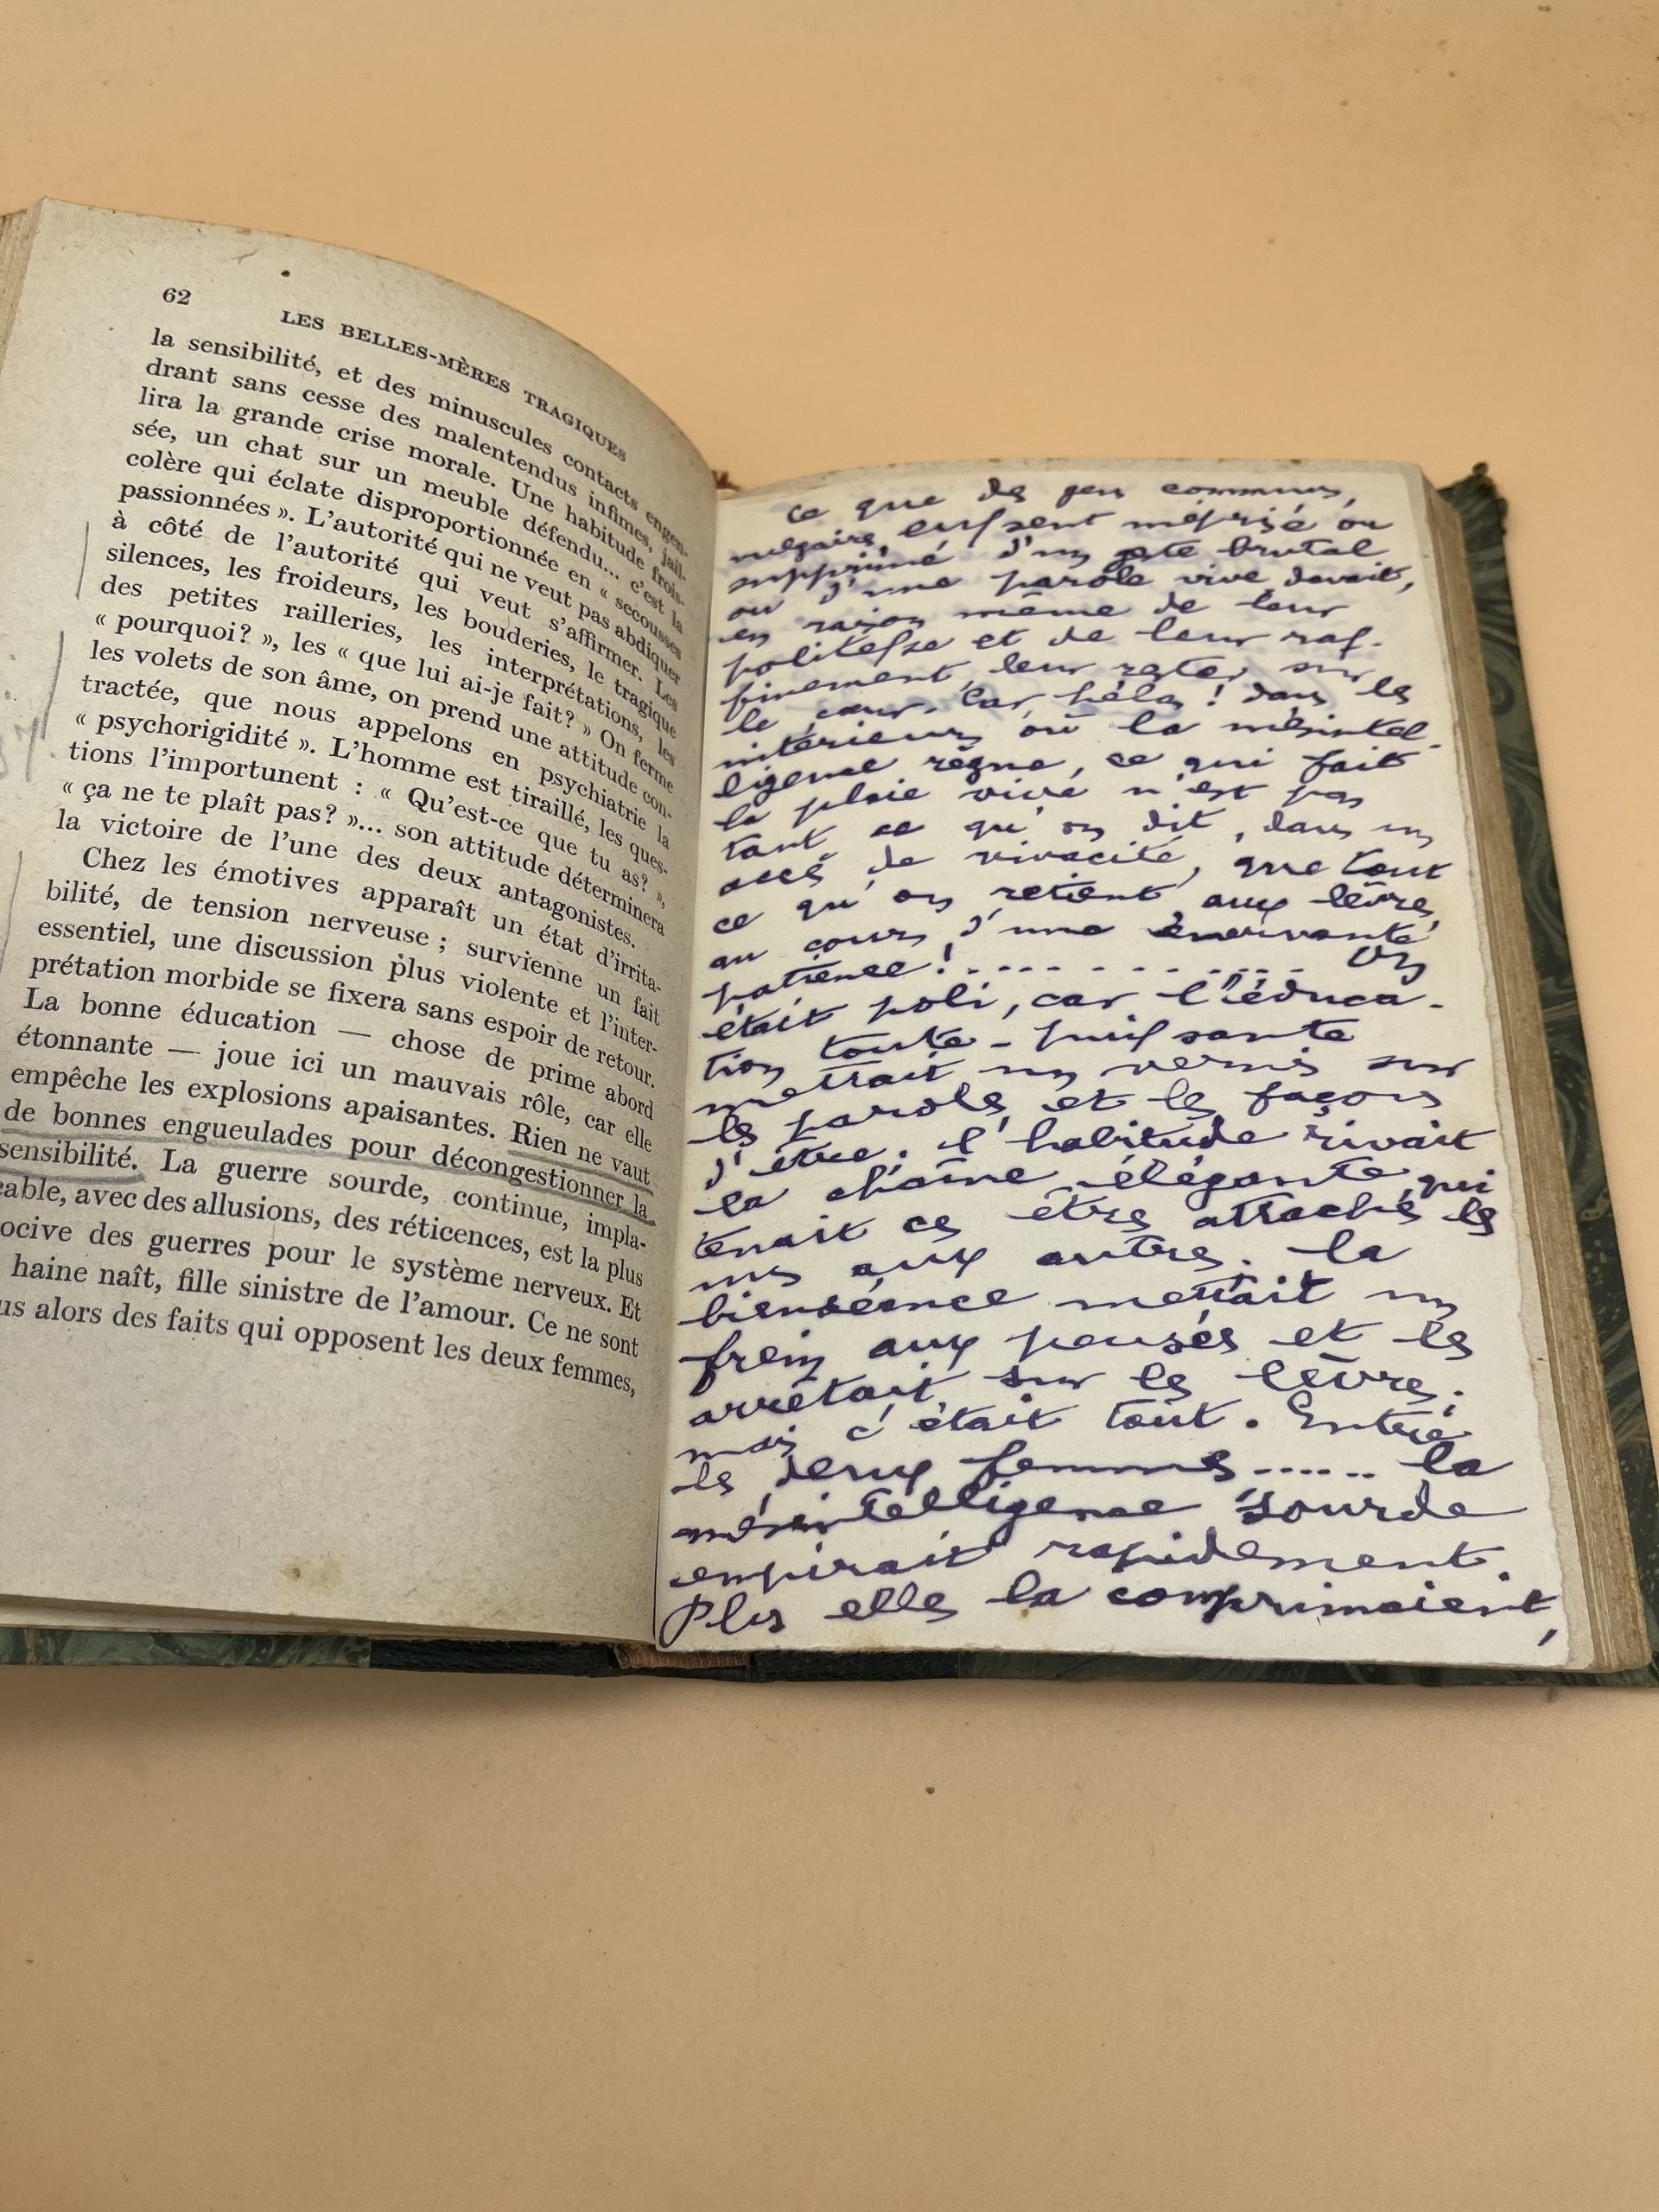 62
LES BELLES-MÈRES TRAGIQUES
la sensibilité, et des minuscules contacts engen-
drant sans cesse des malentendus infimes, jail-
lira la grande crise morale. Une habitude frois-
sée, un chat sur un meuble défendu... c'est la
colère qui éclate disproportionnée en « secousses
passionnées ». L'autorité qui ne veut pas abdiquer
à côté de l'autorité qui veut s'affirmer. Les
silences, les froideurs, les bouderies, le tragique
des petites railleries, les interprétations, les
« pourquoi? », les « que lui ai-je fait? » On ferme
les volets de son âme, on prend une attitude con-
tractée, que nous appelons en psychiatrie la
« psychorigidité ». L'homme est tiraillé, les ques-
tions l'importunent : « Qu'est-ce que tu as? »,
« ça ne te plaît pas? »... son attitude déterminera
la victoire de l'une des deux antagonistes.
Chez les émotives apparaît un état d'irrita-
bilité, de tension nerveuse ; survienne un fait
essentiel, une discussion plus violente et l'inter-
prétation morbide se fixera sans espoir de retour.
La bonne éducation — chose de prime abord
étonnante — joue ici un mauvais rôle, car elle
empêche les explosions apaisantes. Rien ne vaut
de bonnes engueulades pour décongestionner la
sensibilité. La guerre sourde, continue, impla-
cable, avec des allusions, des réticences, est la plus
ocive des guerres pour le système nerveux. Et
haine naît, fille sinistre de l'amour. Ce ne sont
us alors des faits qui opposent les deux femmes,
Ce que des gens communs,
vulgaires eussent méprisé ou
supprimé d'un geste brutal
ou d'une parole vive devait,
en raison même de leur
politesse et de leur raf-
finement, leur rester sur
le cœur. Car hélas ! dans les
intérieurs où la mésintel-
ligence règne, ce qui fait
la plaie vive n'est pas
tant ce qu'on dit, dans un
accès de vivacité, que tout
ce qu'on retient aux lèvres,
au cours d'une énervante
patience !............ On
était poli, car l'éduca-
tion toute-puissante
mettait un vernis sur
les paroles et les façons
d'être. l'habitude rivait
la chaîne élégante qui
tenait ces êtres attachés les
uns aux autres. la
bienséance mettait un
frein aux pensées et les
arrêtait sur les lèvres ;
mais c'était tout. Entre
les deux femmes...... la
mésintelligence sourde
empirait rapidement.
Plus elles la comprimaient,